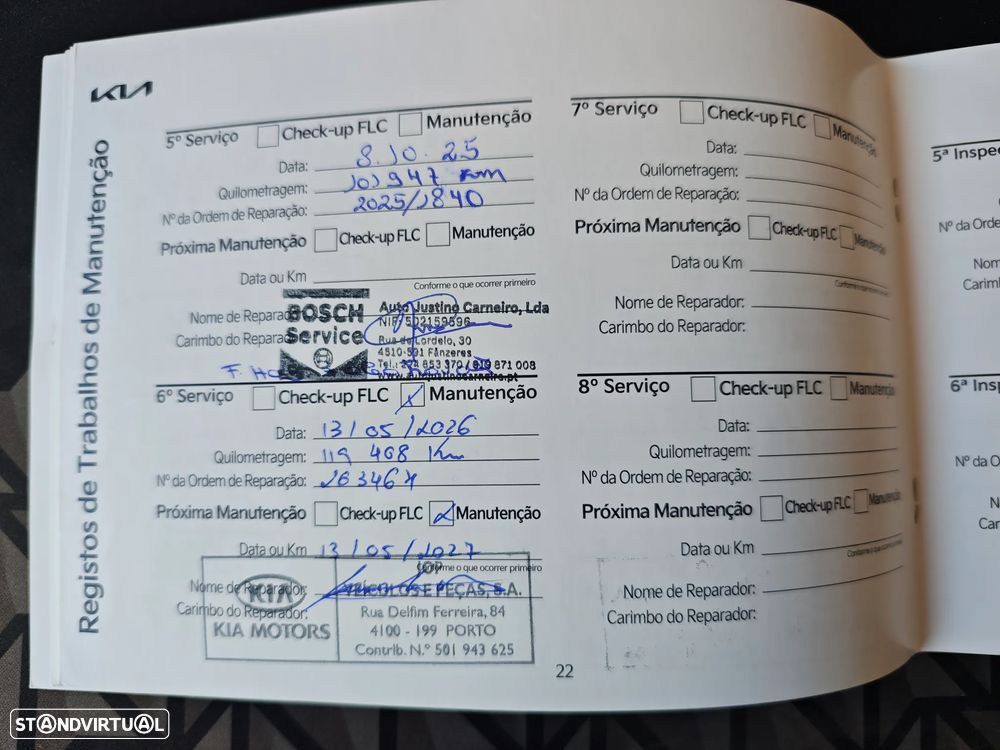 KIA
Registos de Trabalhos de Manutenção
5º Serviço Check-up FLC Manutenção
Data: 8.10.25
Quilometragem: 101947 km
Nº da Ordem de Reparação: 2025/1840
Próxima Manutenção Check-up FLC Manutenção
Data ou Km
Conforme o que ocorrer primeiro
Nome de Reparador:
Carimbo do Reparador:
BOSCH
Service
Auto Justino Carneiro, Lda
NIF 502159596
Rua de Lordelo, 30
4510-591 Fânzeres
/ 919 871 008
6º Serviço Check-up FLC X Manutenção
Data: 13/05/2026
Quilometragem: 119 408 Km
Nº da Ordem de Reparação:
Próxima Manutenção Check-up FLC Manutenção
Data ou Km 13/05/2027
Conforme o que ocorrer primeiro
Nome de Reparador:
Carimbo do Reparador:
KIA
KIA MOTORS
VEÍCULOS E PEÇAS, S.A.
Rua Delfim Ferreira, 84
4100 - 199 PORTO
Contrib. N.º 501 943 625
7º Serviço Check-up FLC Manutenção
Data:
Quilometragem:
Nº da Ordem de Reparação:
Próxima Manutenção Check-up FLC Manutenção
Data ou Km
Conforme o que ocorrer primeiro
Nome de Reparador:
Carimbo do Reparador:
8º Serviço Check-up FLC Manutenção
Data:
Quilometragem:
Nº da Ordem de Reparação:
Próxima Manutenção Check-up FLC Manutenção
Data ou Km
Conforme o que ocorrer primeiro
Nome de Reparador:
Carimbo do Reparador:
22
5ª Inspe
Nº da Orde
Nom
Carim
6ª Insp
Nº da O
No
Car
STANDVIRTUAL